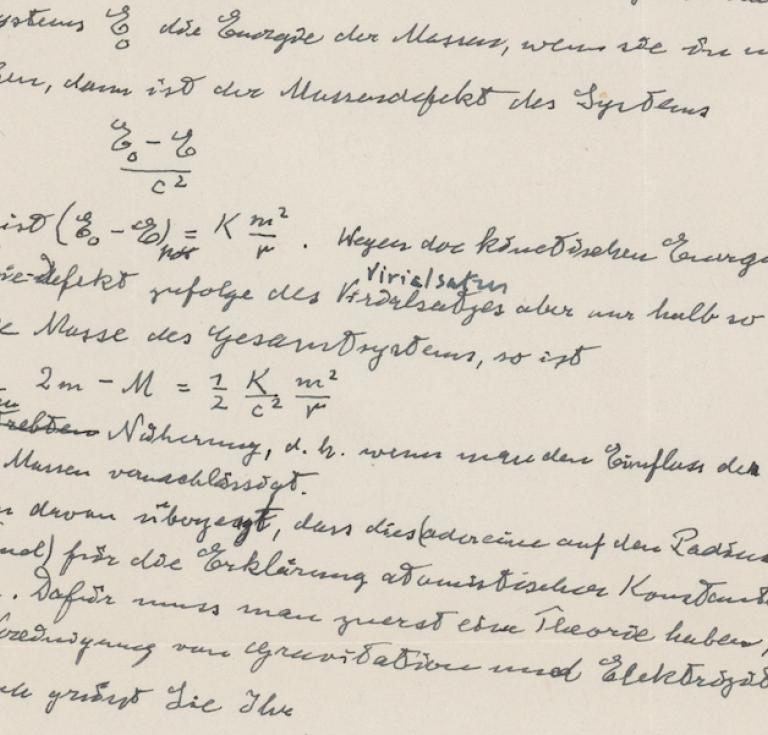 ystems E₀ die Energie der Massen, wenn sie in u
en, dann ist der Massendefekt des Systems
(E₀ - E) / c²
ist (E₀ - E) = K m²/r . Wegen der kinetischen Energ
ie-defekt zufolge des Virialsatzes aber nur halb so
Virialsatzes
e Masse des Gesamtsystems, so ist
2m - M = 1/2 K/c² m²/r
Näherung, d. h. wenn man den Einfluss der
Massen vernachlässigt.
n davon überzeugt, dass dies (oder eine auf den Radius
) für die Erklärung atomistischer Konstant
. Dafür muss man zuerst eine Theorie haben,
Vereinigung von Gravitation und Elektrizit
grüsst Sie Ihr